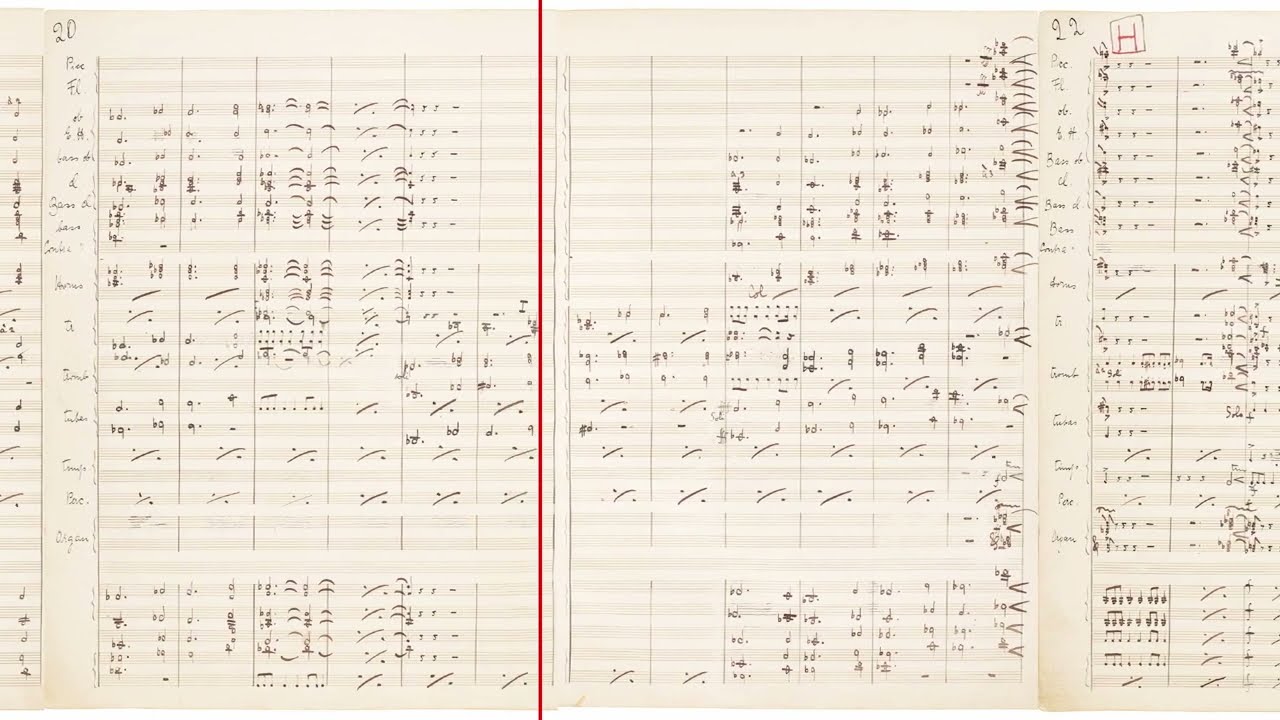 20
Picc
Fl.
ob
E.H.
bass ob
cl
Bass cl
bass
Contra
Horns
tr
tromb
tubas
timp
Perc.
Organ
I
Col
Soli
22
H
Picc.
Fl.
ob.
E.H.
Bass ob
Cl.
Bass cl.
Bass
Contra.
Horns
tr
tromb
tubas
Solo
timp
Perc.
Organ